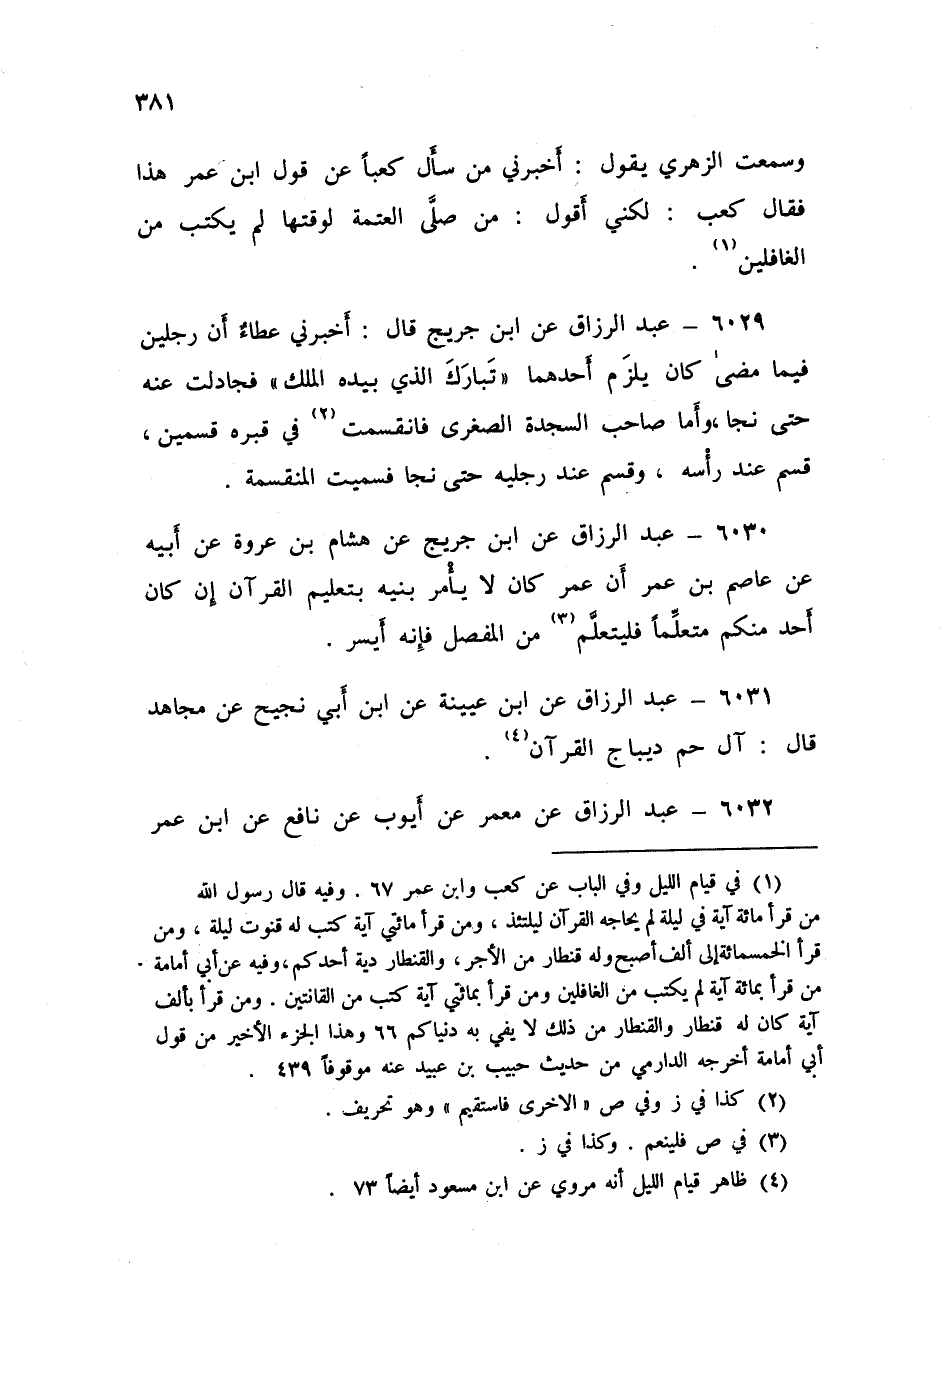 ٣٨١
وسمعت الزهري يقول : أَخبرني من سأَل كعباً عن قول ابن عمر هذا
فقال كعب : لكني أَقول : من صلَّى العتمة لوقتها لم يكتب من
الغافلين(١) .
٦٠٢٩ – عبد الرزاق عن ابن جريج قال : أَخبرني عطاءٌ أَن رجلين
فيما مضىٰ كان يلزَم أَحدهما «تَبارَكَ الذي بيده الملك» فجادلت عنه
حتى نجا ،وأَما صاحب السجدة الصغرى فانقسمت(٢) في قبره قسمين ،
قسم عند رأْسه ، وقسم عند رجليه حتى نجا فسميت المنقسمة .
٦٠٣٠ – عبد الرزاق عن ابن جريج عن هشام بن عروة عن أَبيه
عن عاصم بن عمر أَن عمر كان لا يأْمر بنيه بتعليم القرآن إن كان
أَحد منكم متعلِّماً فليتعلَّم(٣) من المفصل فإنه أَيسر .
٦٠٣١ – عبد الرزاق عن ابن عيينة عن ابن أَبي نجيح عن مجاهد
قال : آل حم ديباج القرآن(٤) .
٦٠٣٢ – عبد الرزاق عن معمر عن أَيوب عن نافع عن ابن عمر
(١) في قيام الليل وفي الباب عن كعب وابن عمر ٦٧ . وفيه قال رسول الله
من قرأ مائة آية في ليلة لم يحاجه القرآن ليلتئذ ، ومن قرأ مائتي آية كتب له قنوت ليلة ، ومن
قرأ الخمسمائة إلى ألف أصبح وله قنطار من الأجر ، والقنطار دية أحدكم ،وفيه عن أبي أمامة -
من قرأ بمائة آية لم يكتب من الغافلين ومن قرأ بمائتي آية كتب من القانتين . ومن قرأ بألف
آية كان له قنطار والقنطار من ذلك لا يفي به دنياكم ٦٦ وهذا الجزء الأخير من قول
أبي أمامة أخرجه الدارمي من حديث حبيب بن عبيد عنه موقوفاً ٤٣٩ .
(٢) كذا في ز وفي ص « الاخرى فاستقيم » وهو تحريف .
(٣) في ص فلينعم . وكذا في ز .
(٤) ظاهر قيام الليل أنه مروي عن ابن مسعود أيضاً ٧٣ .